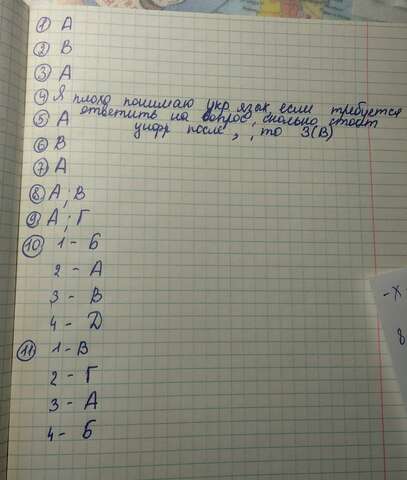 1 А
2 В
3 А
4 Я плохо понимаю укр язык если требуется
ответить на вопрос, сколько стоит
цифр после , , то 3(В)
5 А
6 В
7 А
8 А; В
9 А; Г
10 1 - Б
2 - А
3 - В
4 - Д
11 1 - В
2 - Г
3 - А
4 - Б
-х
8